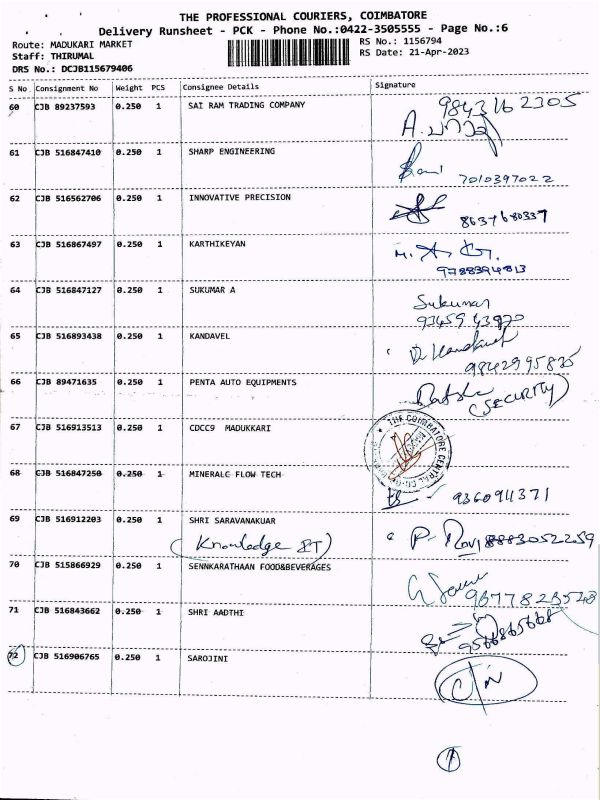 THE PROFESSIONAL COURIERS, COIMBATORE
Delivery Runsheet - PCK - Phone No.:0422-3505555 - Page No.:6
Route: MADUKARI MARKET
RS No.: 1156794
Staff: THIRUMAL
RS Date: 21-Apr-2023
DRS No.: DCJB115679406
S No Consignment No Weight PCS Consignee Details Signature
60 CJB 89237593 0.250 1 SAI RAM TRADING COMPANY 9843162305
61 CJB 516847410 0.250 1 SHARP ENGINEERING
7010397022
62 CJB 516562706 0.250 1 INNOVATIVE PRECISION
8637680337
63 CJB 516867497 0.250 1 KARTHIKEYAN
9788394813
64 CJB 516847127 0.250 1 SUKUMAR A
Sukumar
65 CJB 516893438 0.250 1 KANDAVEL
66 CJB 89471635 0.250 1 PENTA AUTO EQUIPMENTS
(SECURITY)
67 CJB 516913513 0.250 1 CDCC9 MADUKKARI
THE COIMBATORE CENTRAL
68 CJB 516847250 0.250 1 MINERALC FLOW TECH
9360941371
69 CJB 516912203 0.250 1 SHRI SARAVANAKUAR
(Knowledge IT)
P. Ravi 8883052259
70 CJB 515866929 0.250 1 SENNKARATHAAN FOOD&BEVERAGES
71 CJB 516843662 0.250 1 SHRI AADTHI
9566865668
72 CJB 516906765 0.250 1 SAROJINI